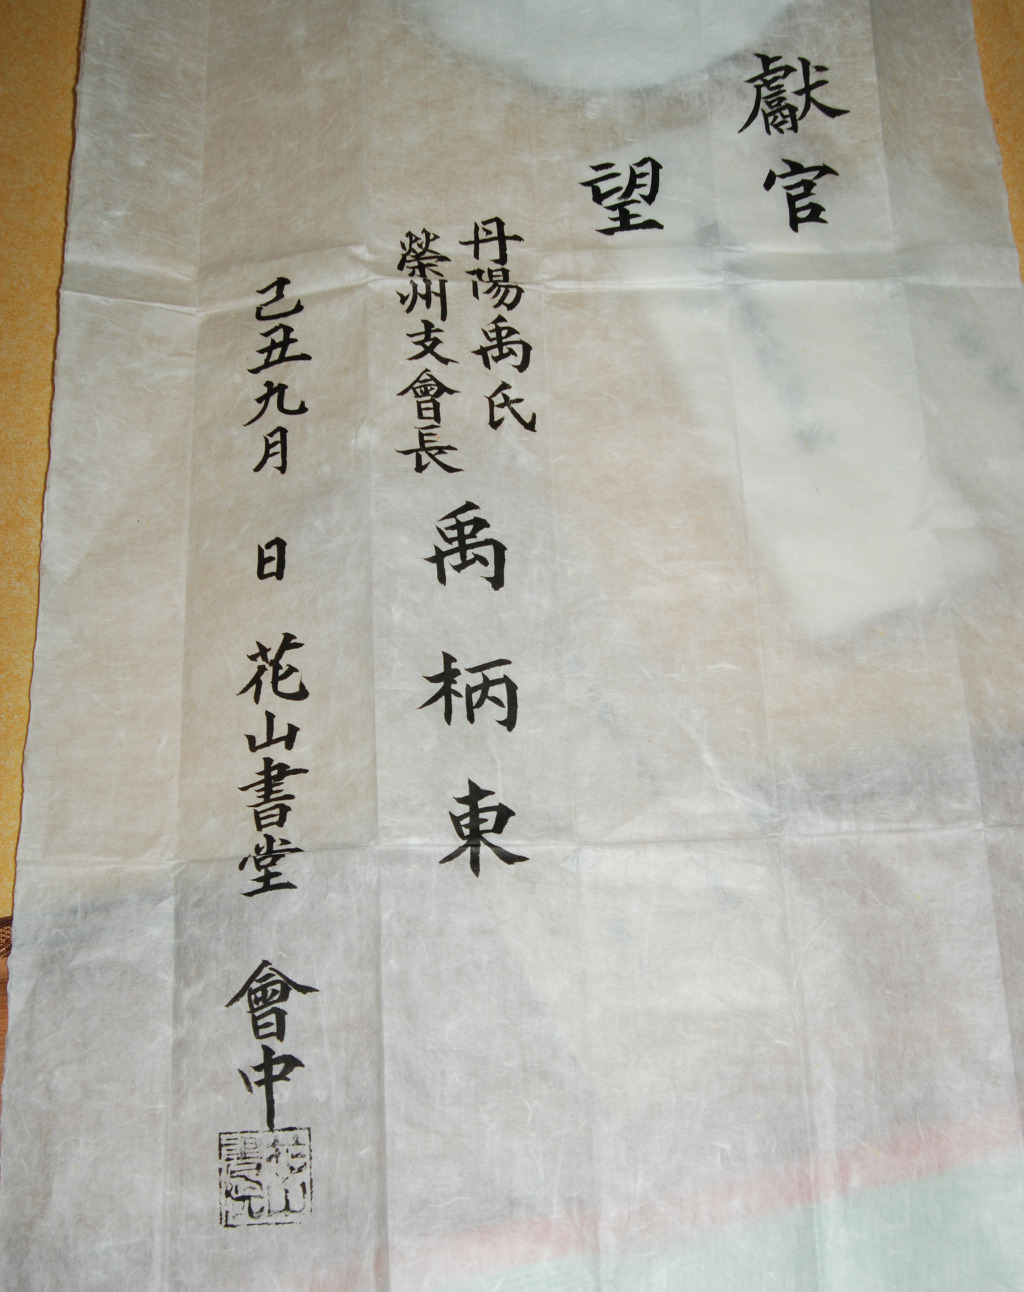 獻官
望
丹陽禹氏
榮州支會長
禹柄東
己丑九月 日 花山書堂 會中